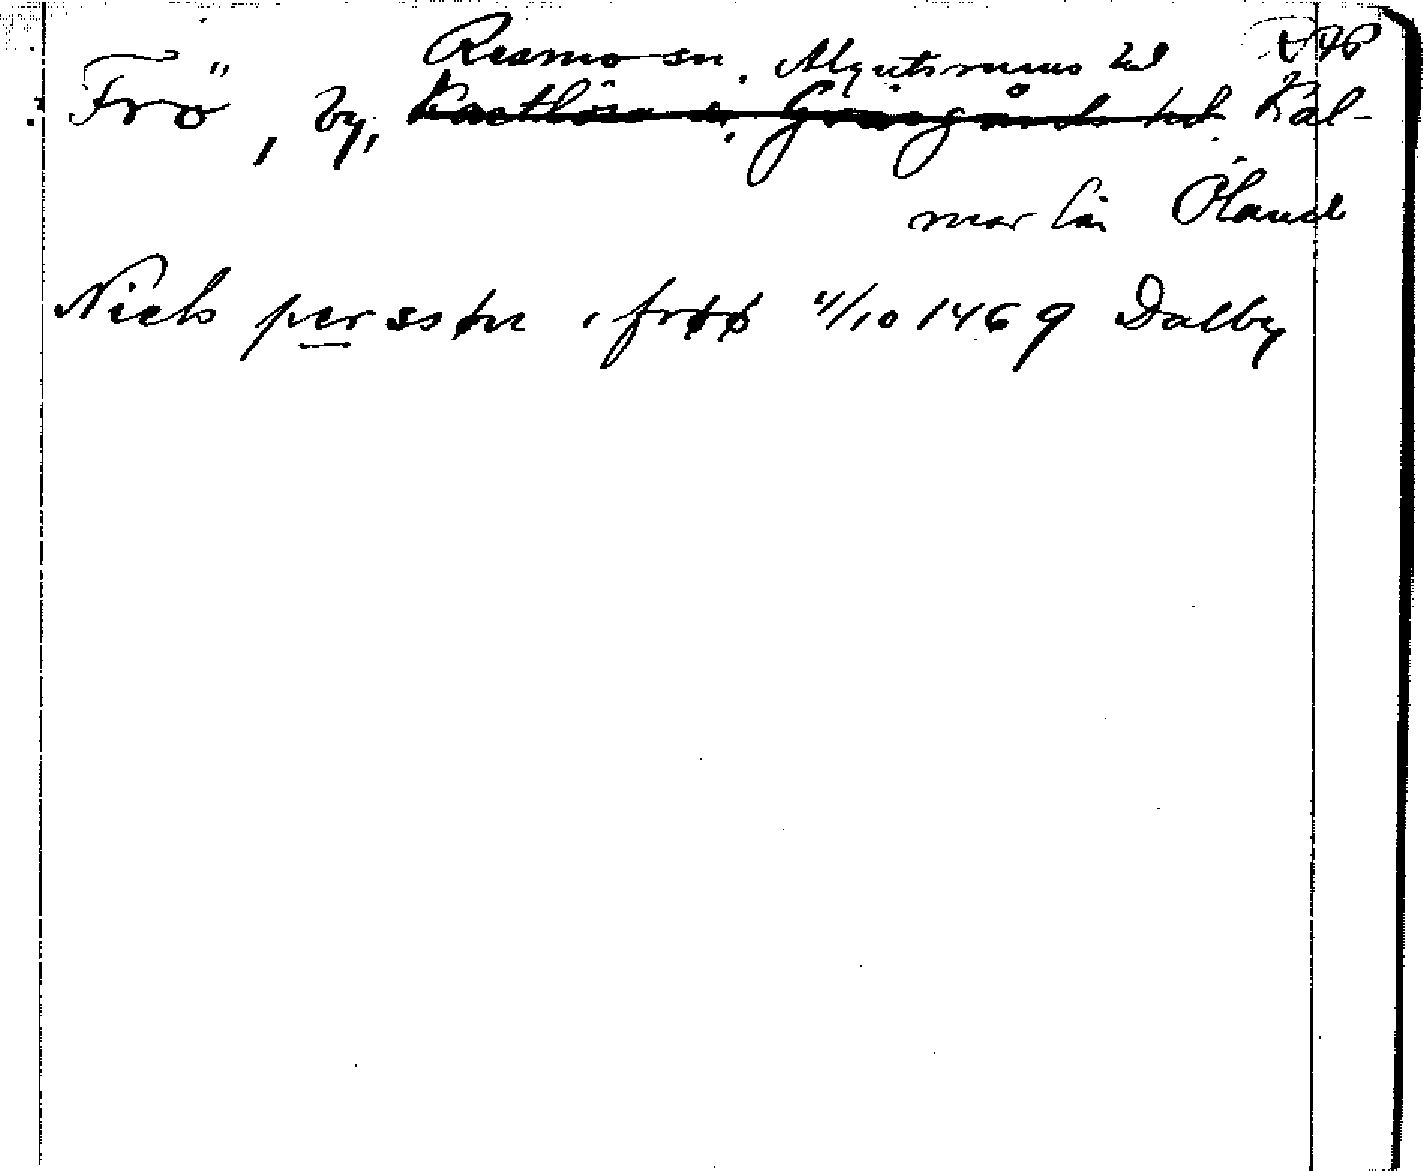 Resmo sn. Algutsrums hd RAP
Frö, by, Kastlösa sn. Gräsgårds hd Kal-
mar län Öland
Niels persson i frøø 4/10 1469 Dalby